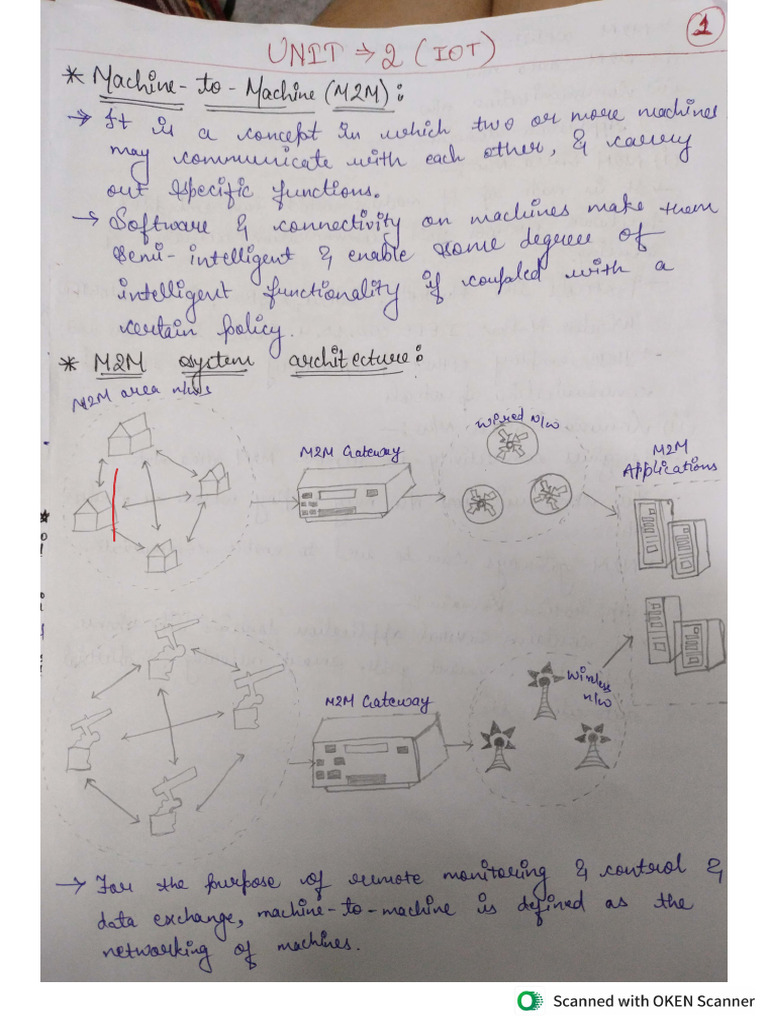 1
UNIT → 2 (IOT)
* Machine-to-Machine (M2M):
→ It is a concept in which two or more machines
may communicate with each other, & carry
out specific functions.
→ Software & connectivity on machines make them
semi-intelligent & enable some degree of
intelligent functionality if coupled with a
certain policy.
* M2M system architecture:
M2M area n/ws
M2M Gateway
Wired N/W
M2M
Applications
M2M Gateway
Wireless
n/w
→ For the purpose of remote monitoring & control &
data exchange, machine-to-machine is defined as the
networking of machines.
Scanned with OKEN Scanner